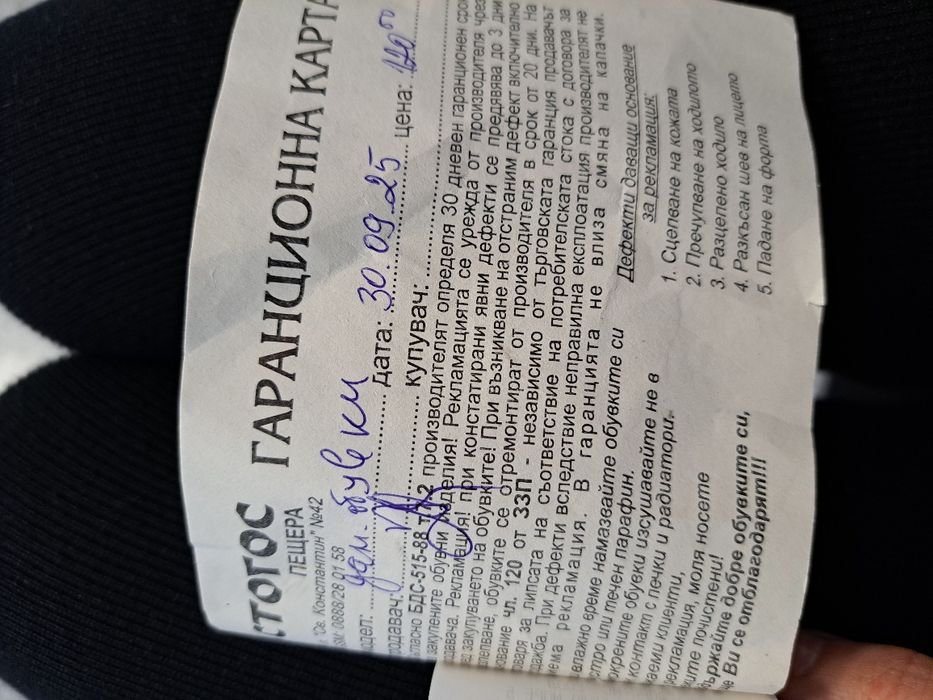 СТОГОС ГАРАНЦИОННА КАРТА
ПЕЩЕРА
"Св. Константин" №42
0888/28 01 58
дам. обувки дата: 30.09.25 цена: 120⁰⁰
продавач: купувач:
БДС-515-88 т. производителят определя 30 дневен гаранционен срок
закупените обувни изделия! Рекламацията се урежда от производителя чрез
Рекламация! при констатирани явни дефекти се предявява до 3 дни
закупуването на обувките! При възникване на отстраним дефект включително
обувките се отремонтират от производителя в срок от 20 дни. На
чл. 120 от ЗЗП - независимо от търговската гаранция продавачът
за липсата на съответствие на потребителската стока с договора за
При дефекти вследствие неправилна експлоатация производителят не
рекламация. В гаранцията не влиза смяна на капачки.
влажно време намазвайте обувките си
или течен парафин.
обувки изсушавайте не в
контакт с печки и радиатори.
клиенти,
рекламация, моля носете
почистени!
добре обувките си,
Ви се отблагодарят!!!
Дефекти даващи основание
за рекламация:
1. Сцепване на кожата
2. Пречупване на ходилото
3. Разцепено ходило
4. Разкъсан шев на лицето
5. Падане на форта